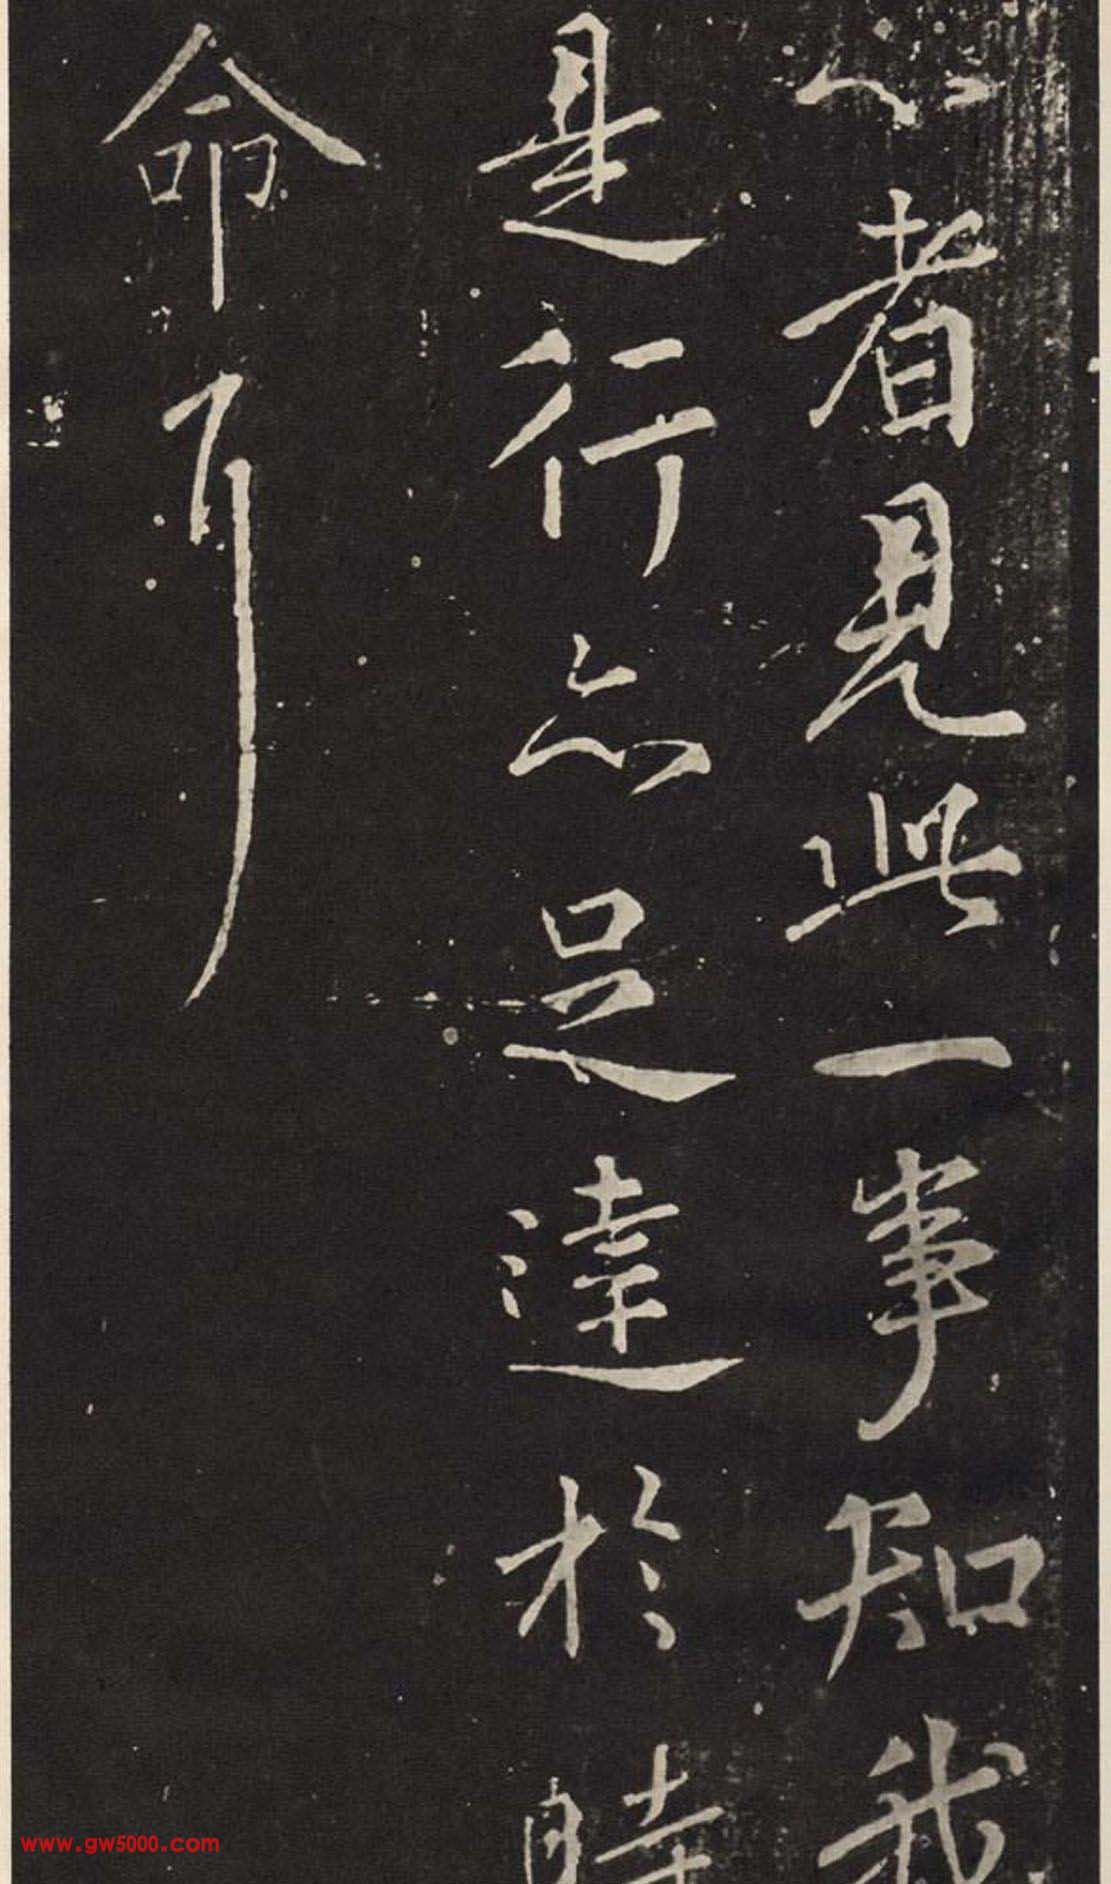 心者見此一事知我
是行亦足達於時
命耳
www.gw5000.com